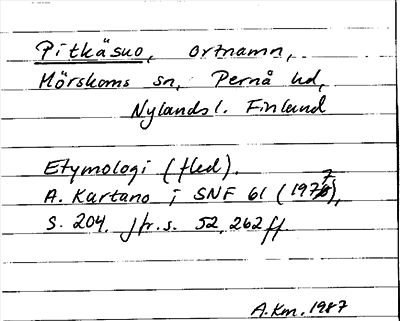 Pitkäsuo, ortnamn,
Mörskoms sn, Pernå hd,
Nylands l. Finland
Etymologi (fled).
A. Kartano i SNF 61 (1977),
s. 204. jfr. s. 52, 262 ff.
A.Km. 1987